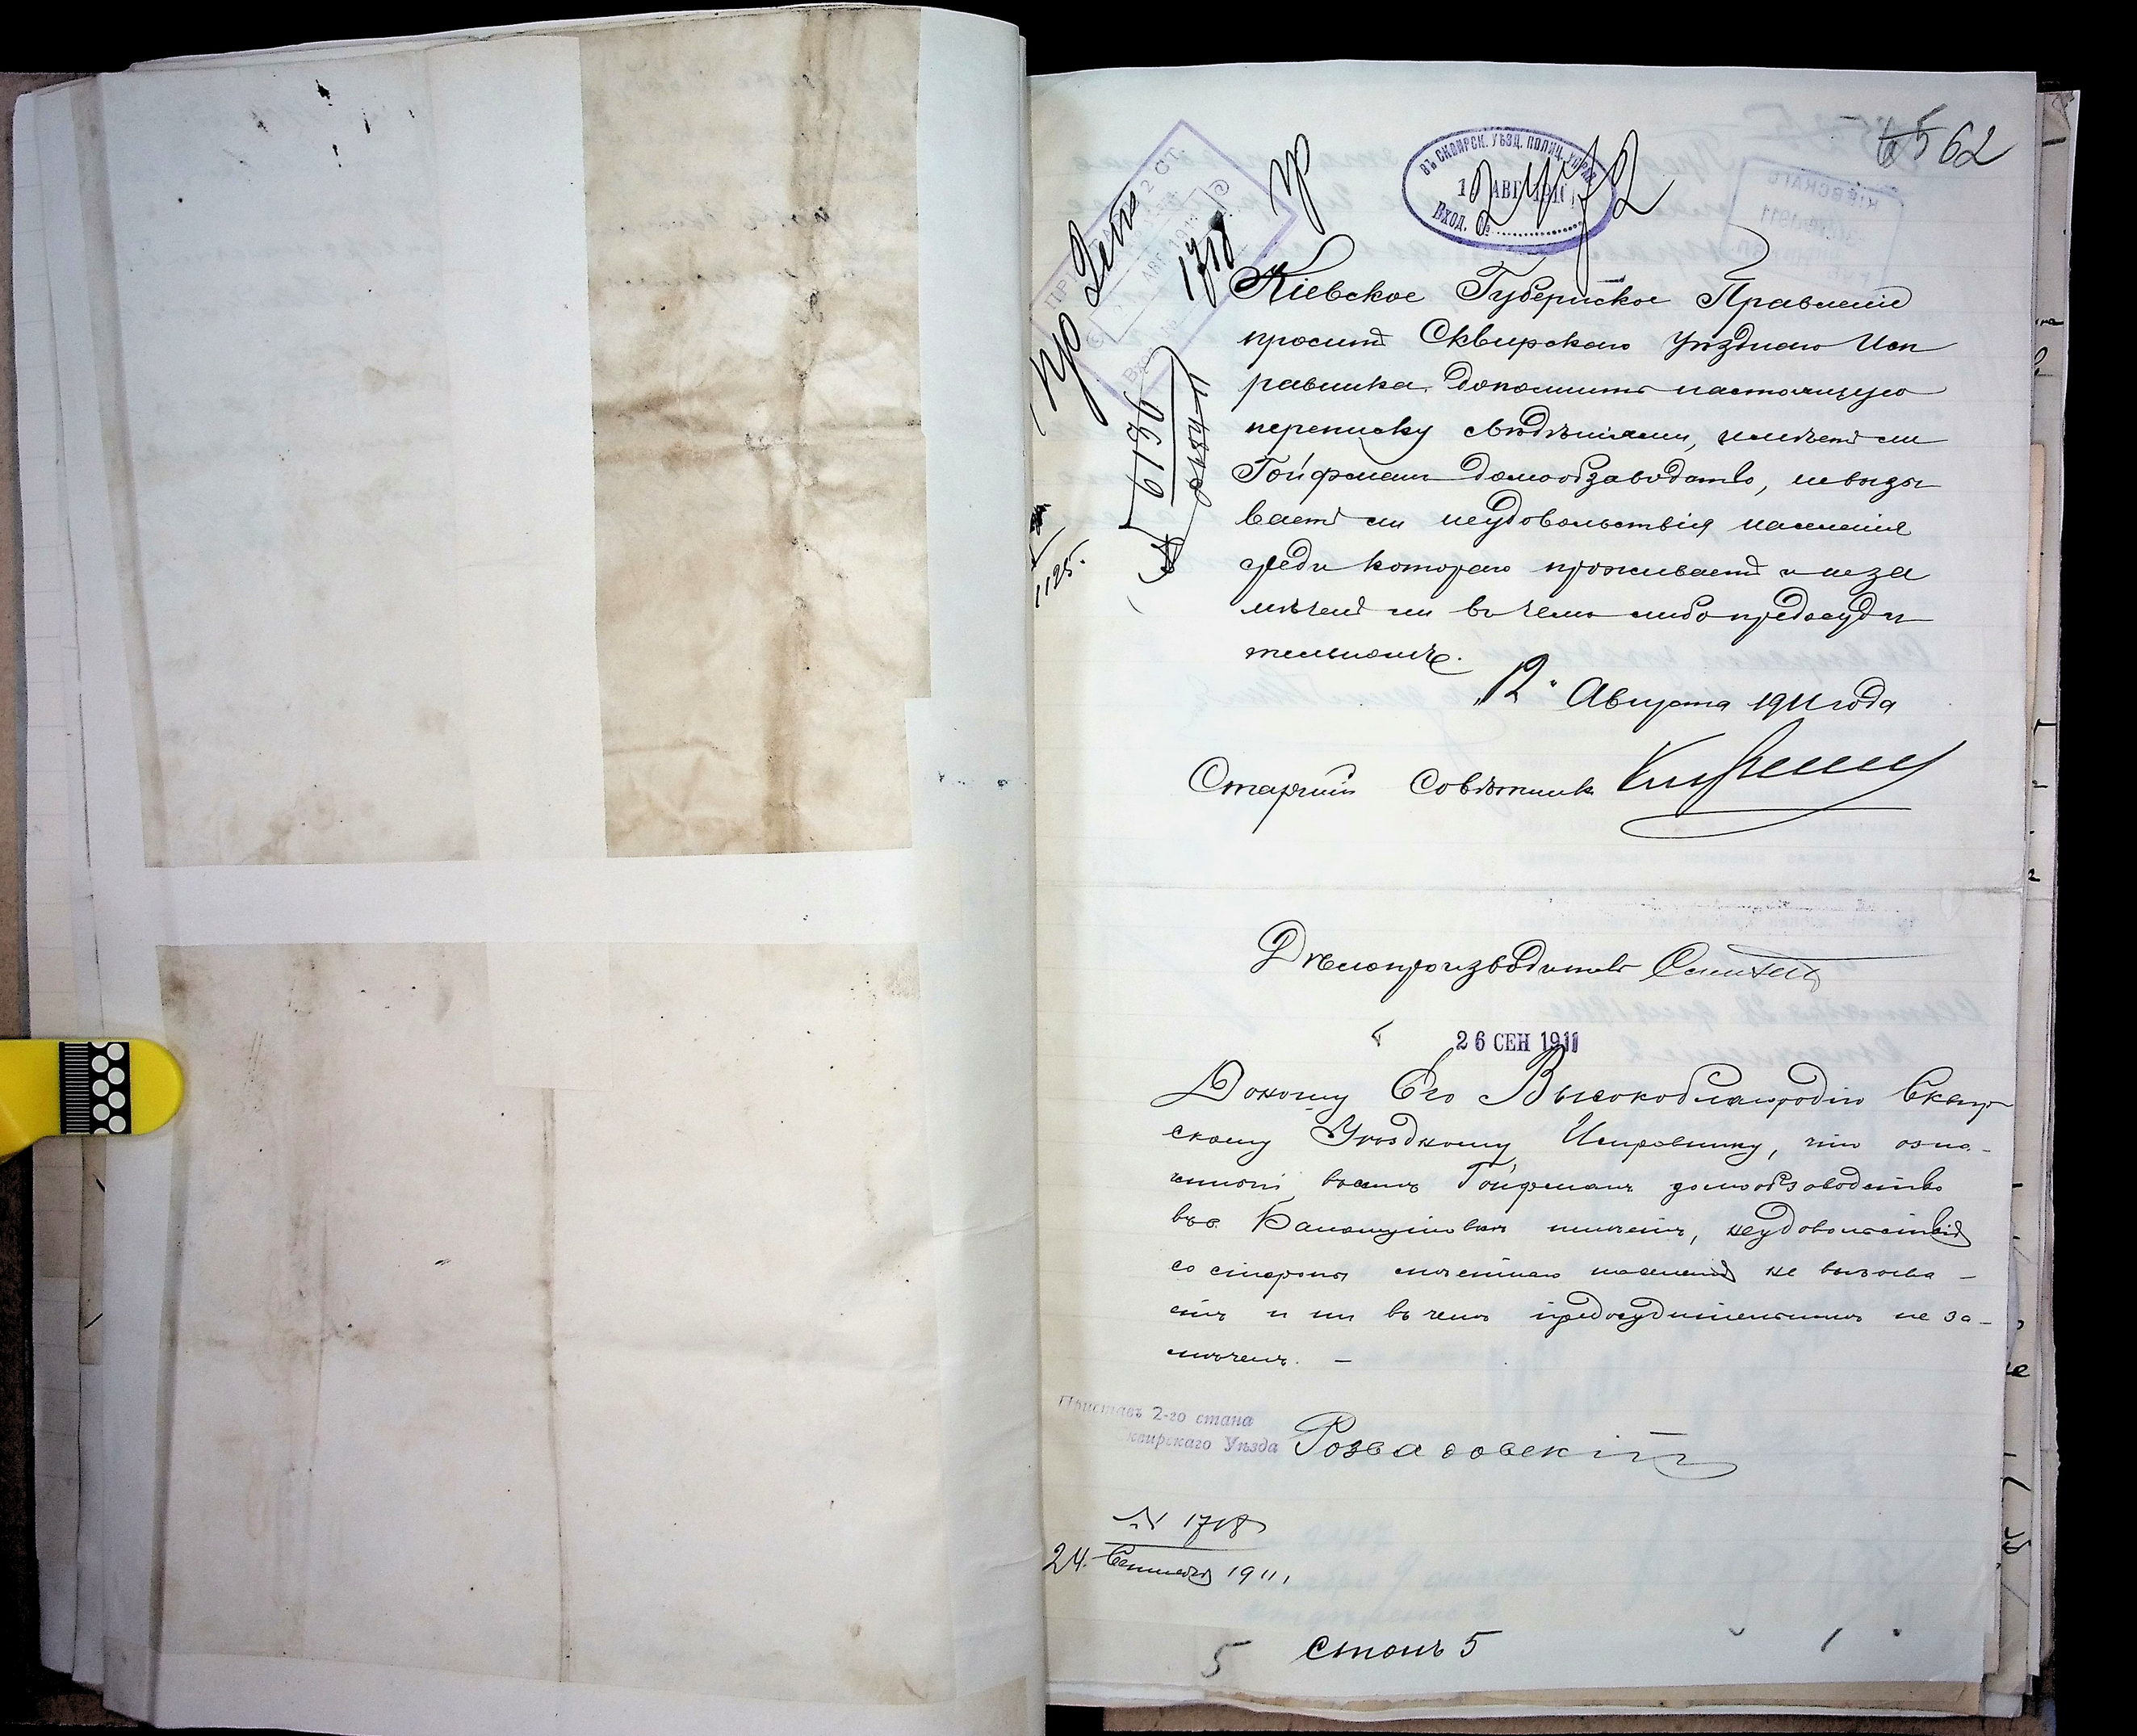 65 62
ВЪ СКВИРСК. УѢЗД. ПОЛИЦ. УПРАВ.
АВГ 1911
Вход. №
2472
1718
6136
1125.
Кіевское Губернское Правленіе
проситъ Сквирскаго Уѣзднаго Исп
равника дополнить настоящую
переписку свѣдѣніями, имѣетъ ли
Гойфманъ домообзаводство, невызы
ваетъ ли неудовольствія населенія
среди котораго проживаетъ и неза
мѣченъ ли въ чемъ либо предосуди
тельномъ.
"12" Августа 1911 года
Старшій Совѣтникъ
Дѣлопроизводитель
26 СЕН 1911
Доношу Его Высокоблагородію Сквир
скому Уѣздному Исправнику, что озна-
ченный Гойфманъ домообзаводство
въ с. имѣетъ, неудовольствія
со стороны мѣстнаго населенія не вызыва-
етъ и ни въ чемъ предосудительномъ не за-
мѣченъ. –
Приставъ 2-го стана
Сквирскаго Уѣзда Розвадовскій
№ 1718
24 Сентября 1911
5 станъ 5